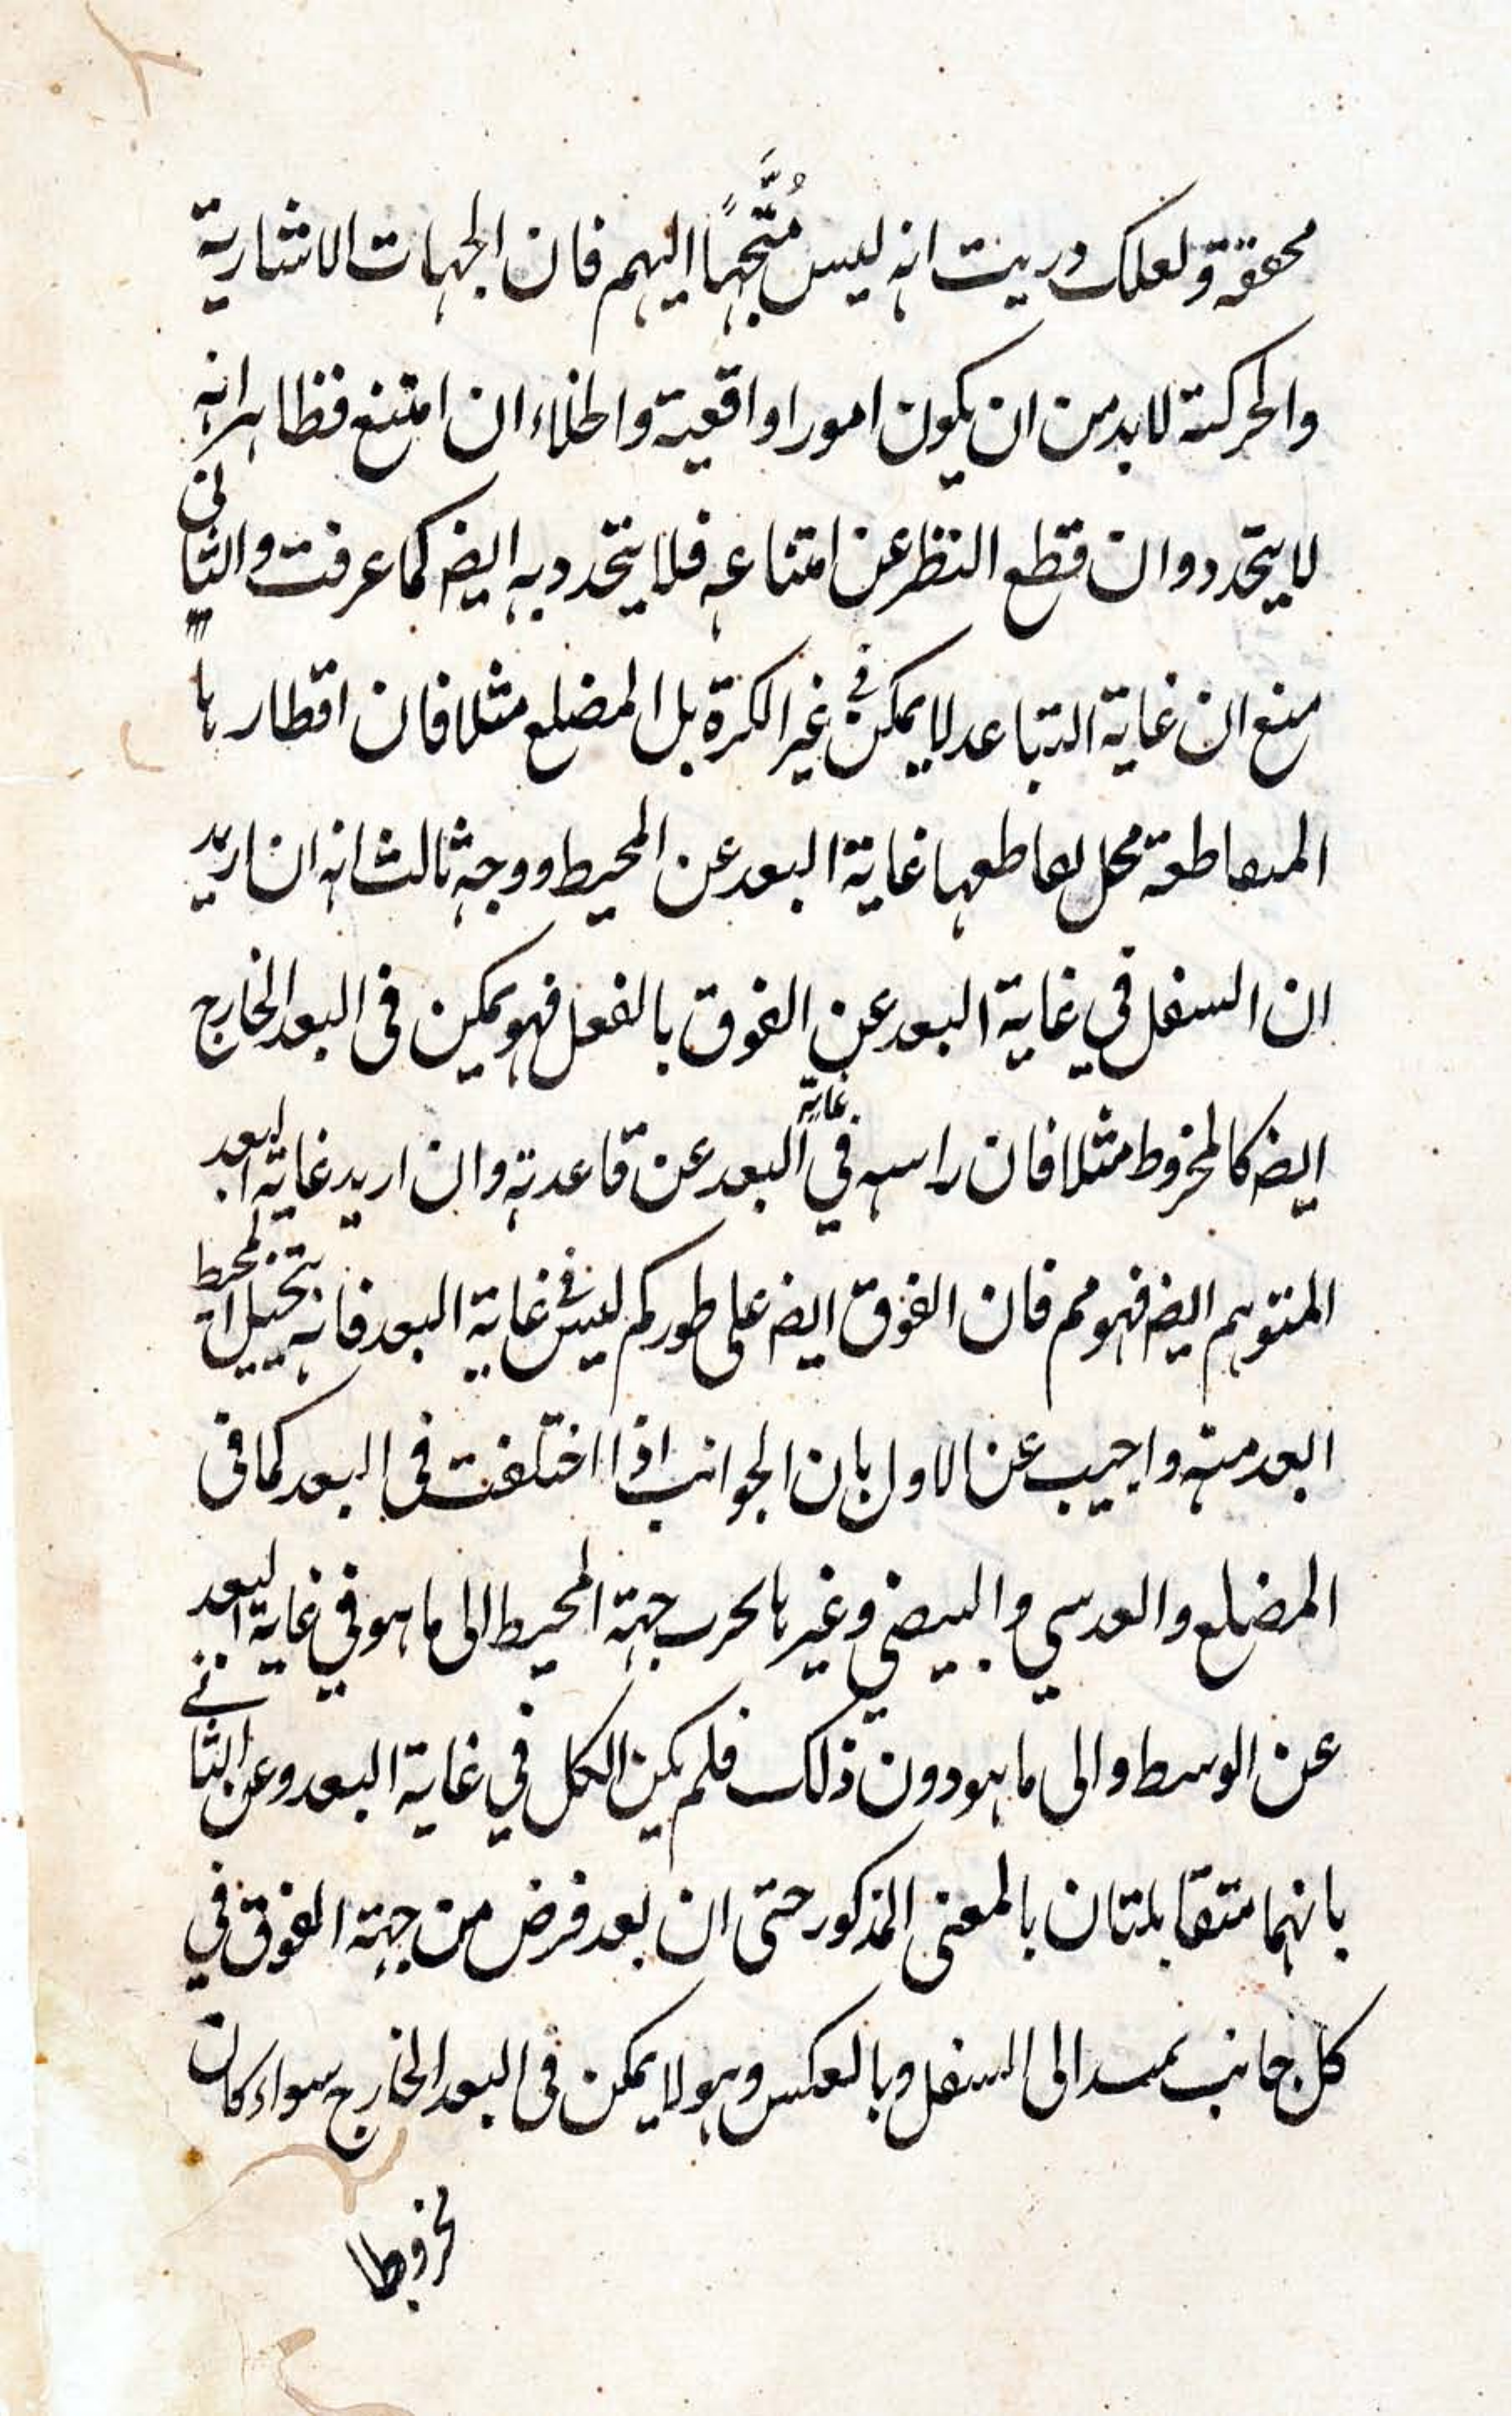 محققة ولعلك دريت انه ليس مُتَّجهًا اليهم فان الجهات الاشارية
والحركة لابد من ان يكون امورا واقعية والخلاء ان امتنع فظاهر انه
لا يتحدد وان قطع النظر عن امتناعه فلا يتحدد به ايضه كما عرفت والثانى
منع ان غاية التباعد لا يمكن فى غير الكرة بل المضلع مثلا فان اقطارها
المتقاطعة محل تقاطعها غاية البعد عن المحيط ووجه ثالث انه ان اريد
ان السفل في غاية البعد عن الفوق بالفعل فهو يمكن فى البعد الخارج
ايضه كالمخروط مثلا فان راسه في غاية البعد عن قاعدته وان اريد غاية البعد
المتوهم ايضه فهو مم فان الفوق ايضه على طوركم ليس فى غاية البعد فانه يتخيل المحيط
ابعد منه واجيب عن الاول بان الجوانب اذا اختلفت فى البعد كما فى
المضلع والعدسي والبيضي وغيرها جهة المحيط الى ما هو في غاية البعد
عن الوسط والى ما هو دون ذلك فلم يكن الكل في غاية البعد وعن الثانے
بانهما متقابلتان بالمعنى المذكور حتى ان بعد فرض من جهة الفوق في
كل جانب يمتد الى السفل وبالعكس وهو لا يمكن فى البعد الخارج سواء كان
مخروطا